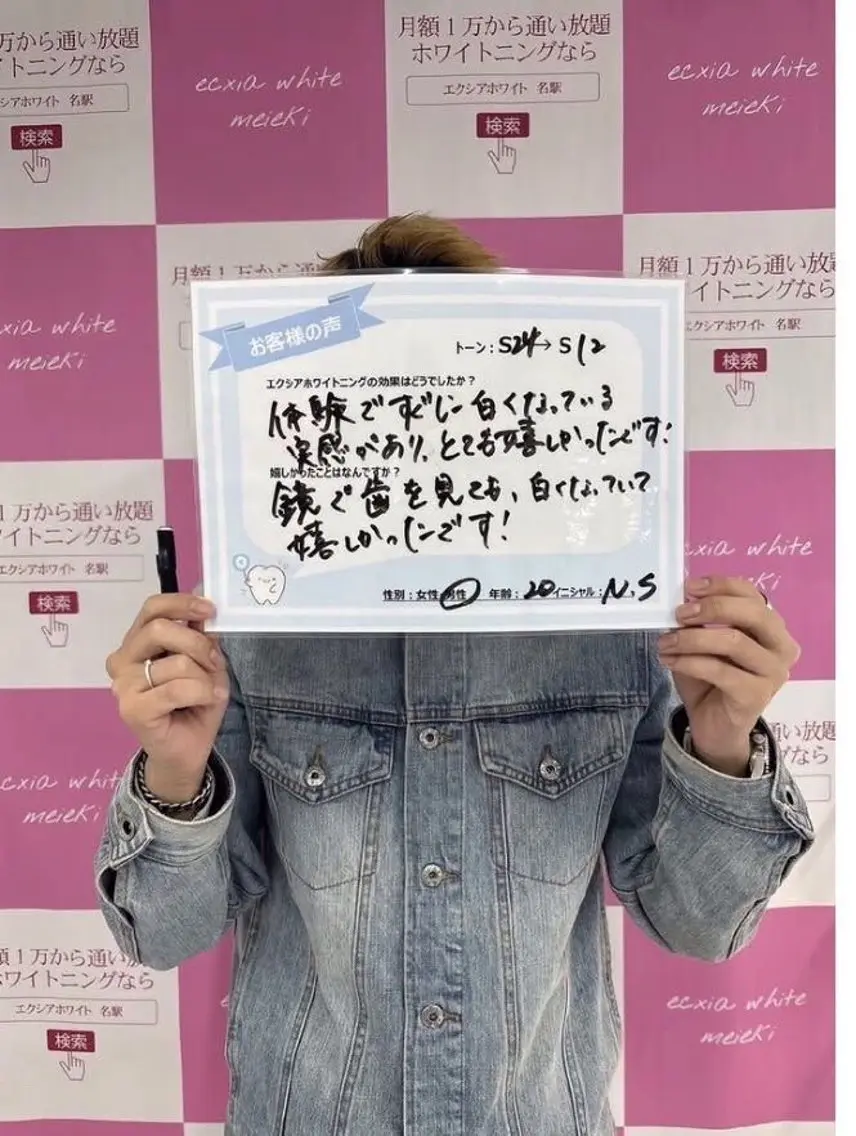 万から通い放題
イトニングなら
シアホワイト 名駅
検索
ecxia white
meieki
月額1万から通い放題
ホワイトニングなら
エクシアホワイト 名駅
検索
ecxia white
meieki
xia white
meieki
月額1万から通い放題
月額1万から通い放題
イトニングなら
エクシアホワイト 名駅
検索
お客様の声
トーン:S24→S12
エクシアホワイトニングの効果はどうでしたか?
体験ですぐに白くなっている
実感があり、とても嬉しかったです!
嬉しかったことはなんですか?
鏡で歯を見ても、白くなっていて
嬉しかったです!
性別:女性 男性 年齢:20 イニシャル:N.S
1万から通い放題
ワイトニングなら
エクシアホワイト 名駅
検索
xia white
ki
cxia whit
meieki
通い放題
なら
額1万から通い放
ホワイトニングなら
エクシアホワイト 名駅
検索
ecxia white
meieki